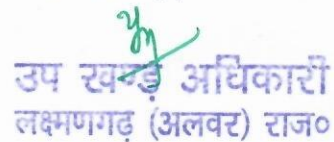 उप खण्ड अधिकारी
लक्ष्मणगढ़ (अलवर) राज०